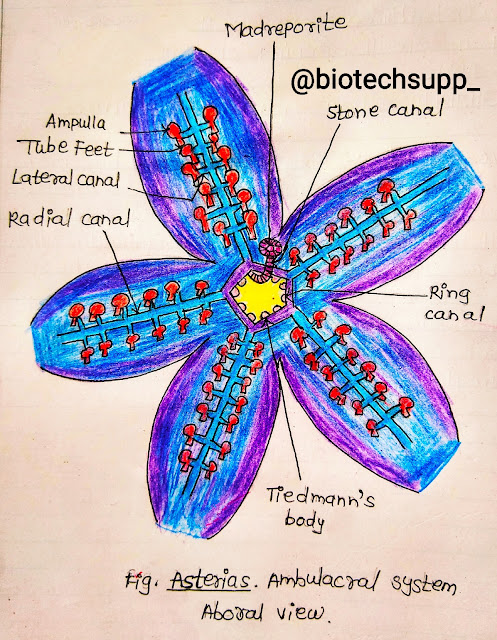 Madreporite
@biotechsupp_
Stone canal
Ampulla
Tube Feet
Lateral canal
Radial canal
Ring
canal
Tiedmann's
body
Fig. Asterias. Ambulacral system
Aboral view.